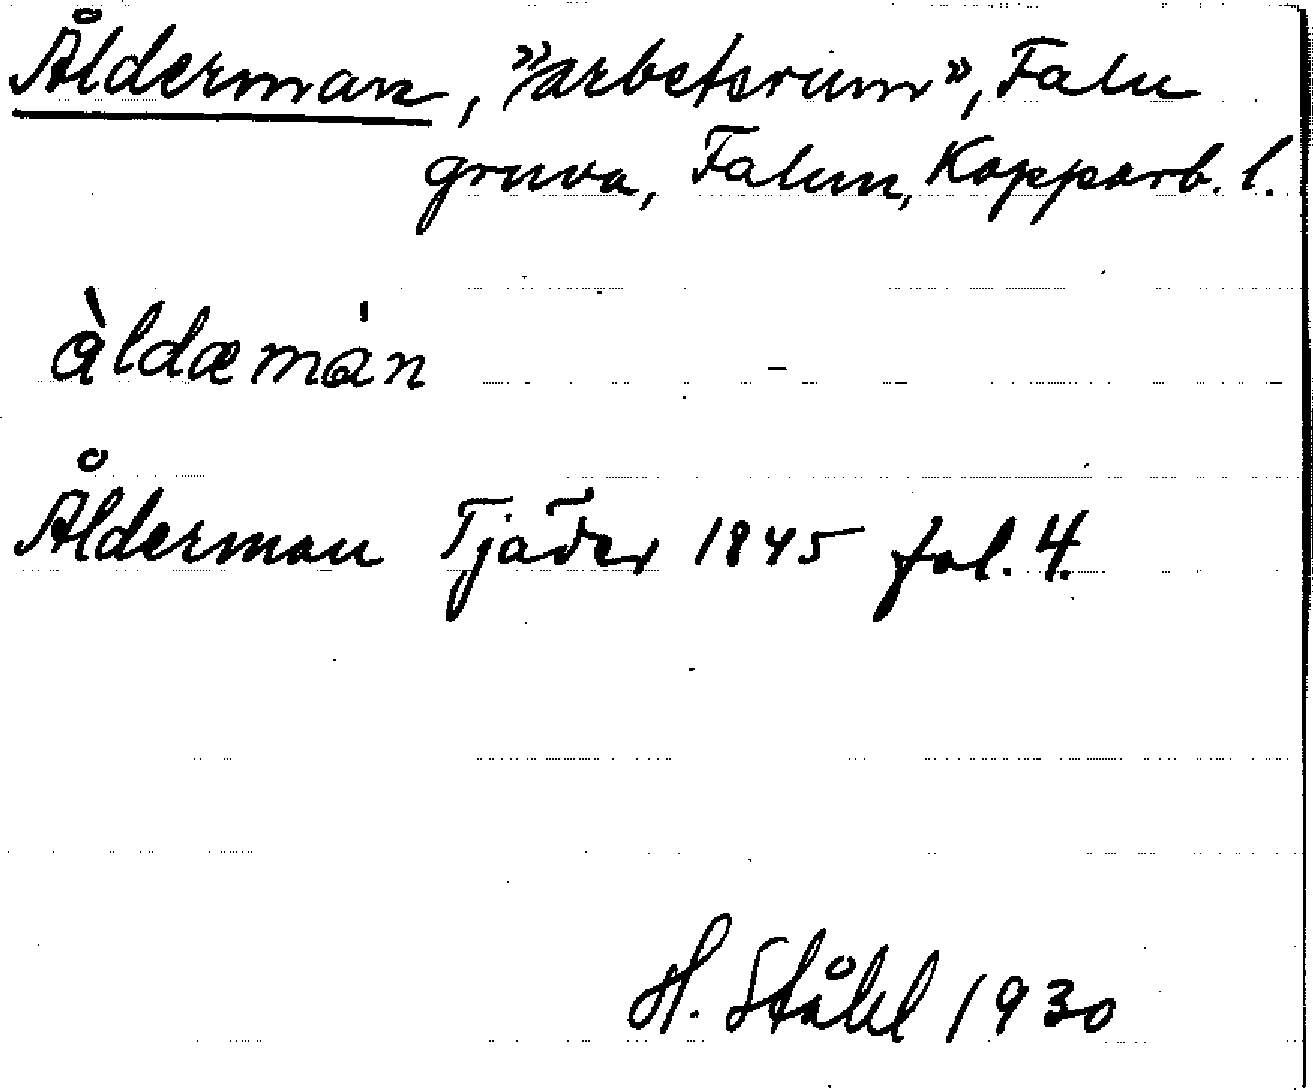 Ålderman, "arbetsrum", Falu
gruva, Falun, Kopparb. l.
àldæmán
Ålderman Tjäder 1845 fol. 4.
H. Ståhl 1930